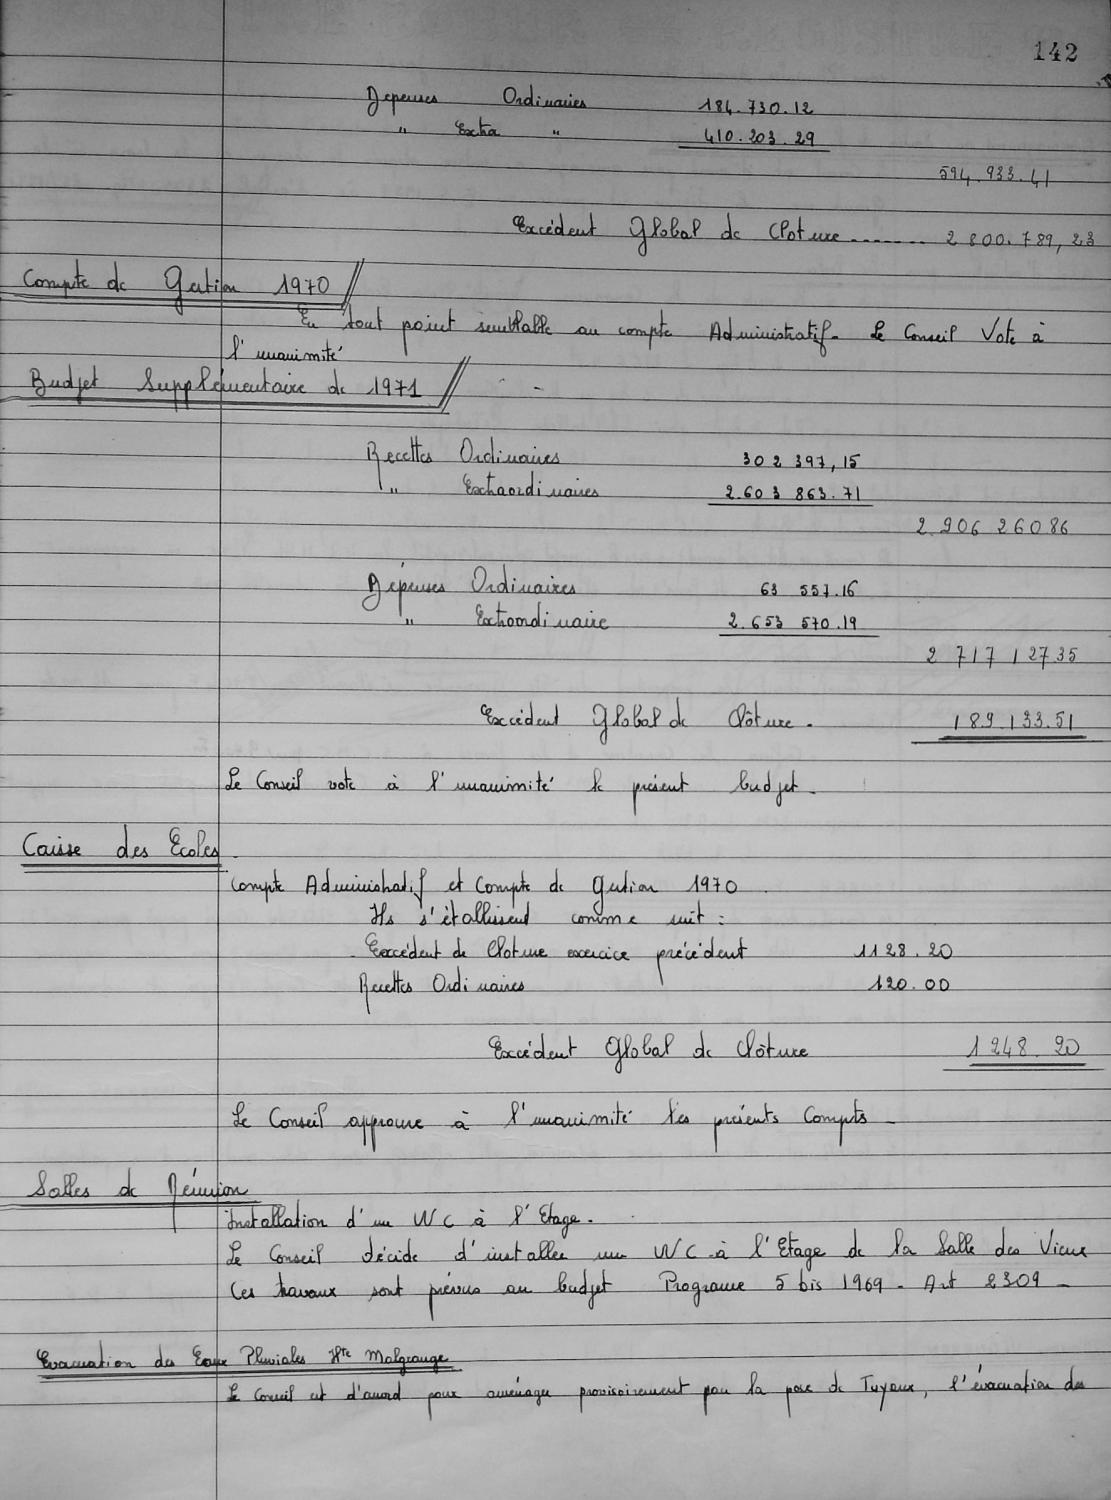 142
Dépenses Ordinaires 184.730.12
" Extra " 410.203.29
594.933.41
Excédent Global de Cloture ....... 2 800.789,23
Compte de Gestion 1970
En tout point semblable au compte Administratif. Le Conseil Vote à
l'unanimité
Budget Supplémentaire de 1971
Recettes Ordinaires 302 397,15
" Extraordinaires 2.603 863.71
2 906 260 86
Dépenses Ordinaires 63 557.16
" Extraordinaire 2.653 570.19
2 717 127 35
Excédent Global de Clôture. 189.133.51
Le Conseil vote à l'unanimité le présent budget.
Caisse des Ecoles.
Compte Administratif et Compte de gestion 1970
Ils s'établissent comme suit :
Excédent de Cloture exercice précédent 1128.20
Recettes Ordinaires 120.00
Excédent Global de Clôture 1248.20
Le Conseil approuve à l'unanimité les présents Compts.
Salles de Réunion
Installation d'un WC à l'Etage.
Le Conseil décide d'installer un WC à l'Etage de la Salle des Vieux
Ces travaux sont prévus au budget Programe 5 bis 1969 - Art 2309 -
Evacuation des Eaux Pluviales Hte Malgrange
Le Conseil est d'accord pour aménager provisoirement par la pose de Tuyaux, l'évacuation des